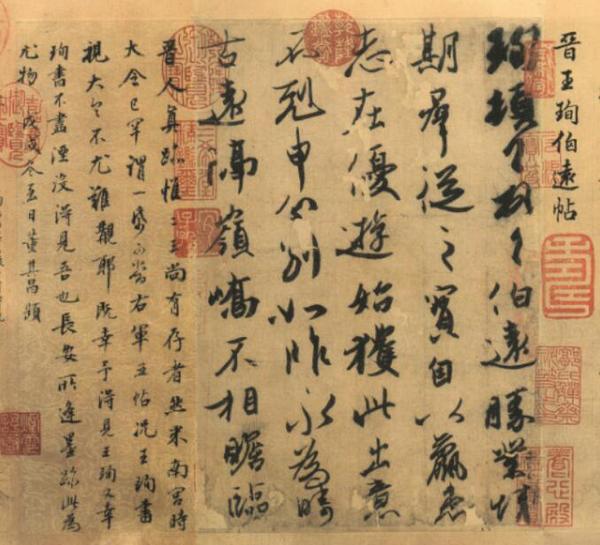 晉王珣伯遠帖
珣頓首頓首伯遠勝業情
期群從之寶自以羸患
志在優遊始獲此出意
不剋申分別如昨永為疇
古遠隔嶺嶠不相瞻臨
晉人真跡惟二王尚有存者然米南宮時
大令已罕謂一帋可當右軍五帖況王珣書
視大令不尤難覯耶既幸予得見王珣又幸
珣書不盡湮沒得見吾也長安所逢墨跡此為
尤物戊戌冬至日董其昌題